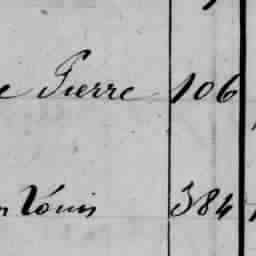 e Pierre 106
n Louis 384